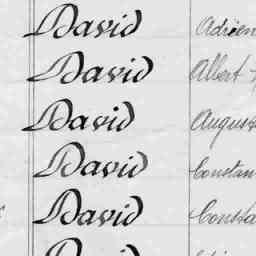 David Adrien
David Albert
David August
David Constan
David Consta
David